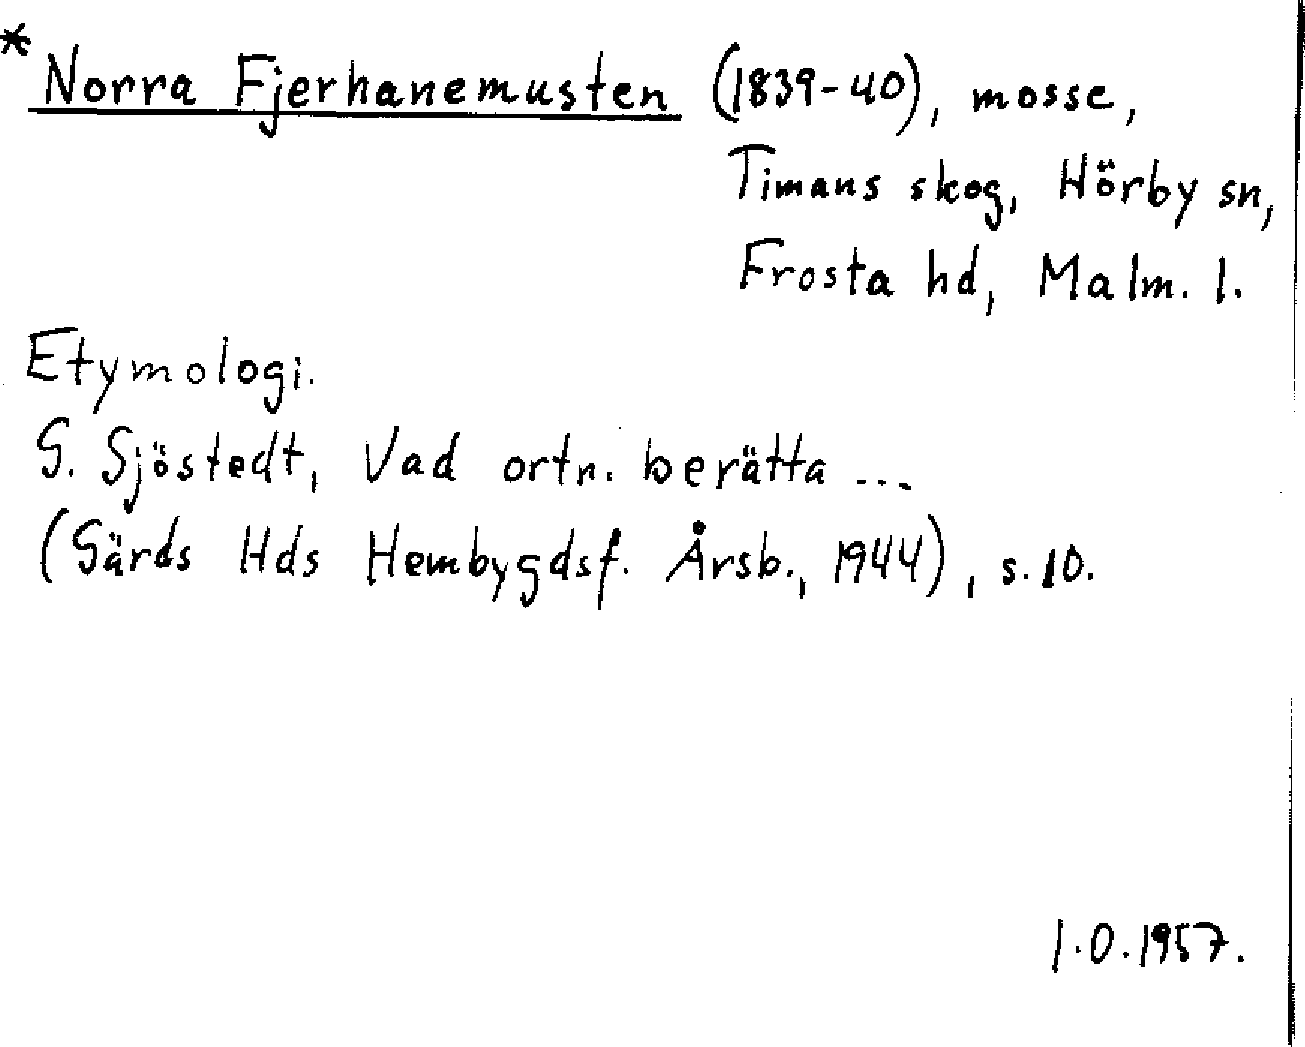 * Norra Fjerhanemusten (1839-40), mosse,
Timans skog, Hörby sn,
Frosta hd, Malm. l.
Etymologi.
G. Sjöstedt, Vad ortn. berätta ...
(Gärds Hds Hembygdsf. Årsb., 1944), s. 10.
I.O. 1957.